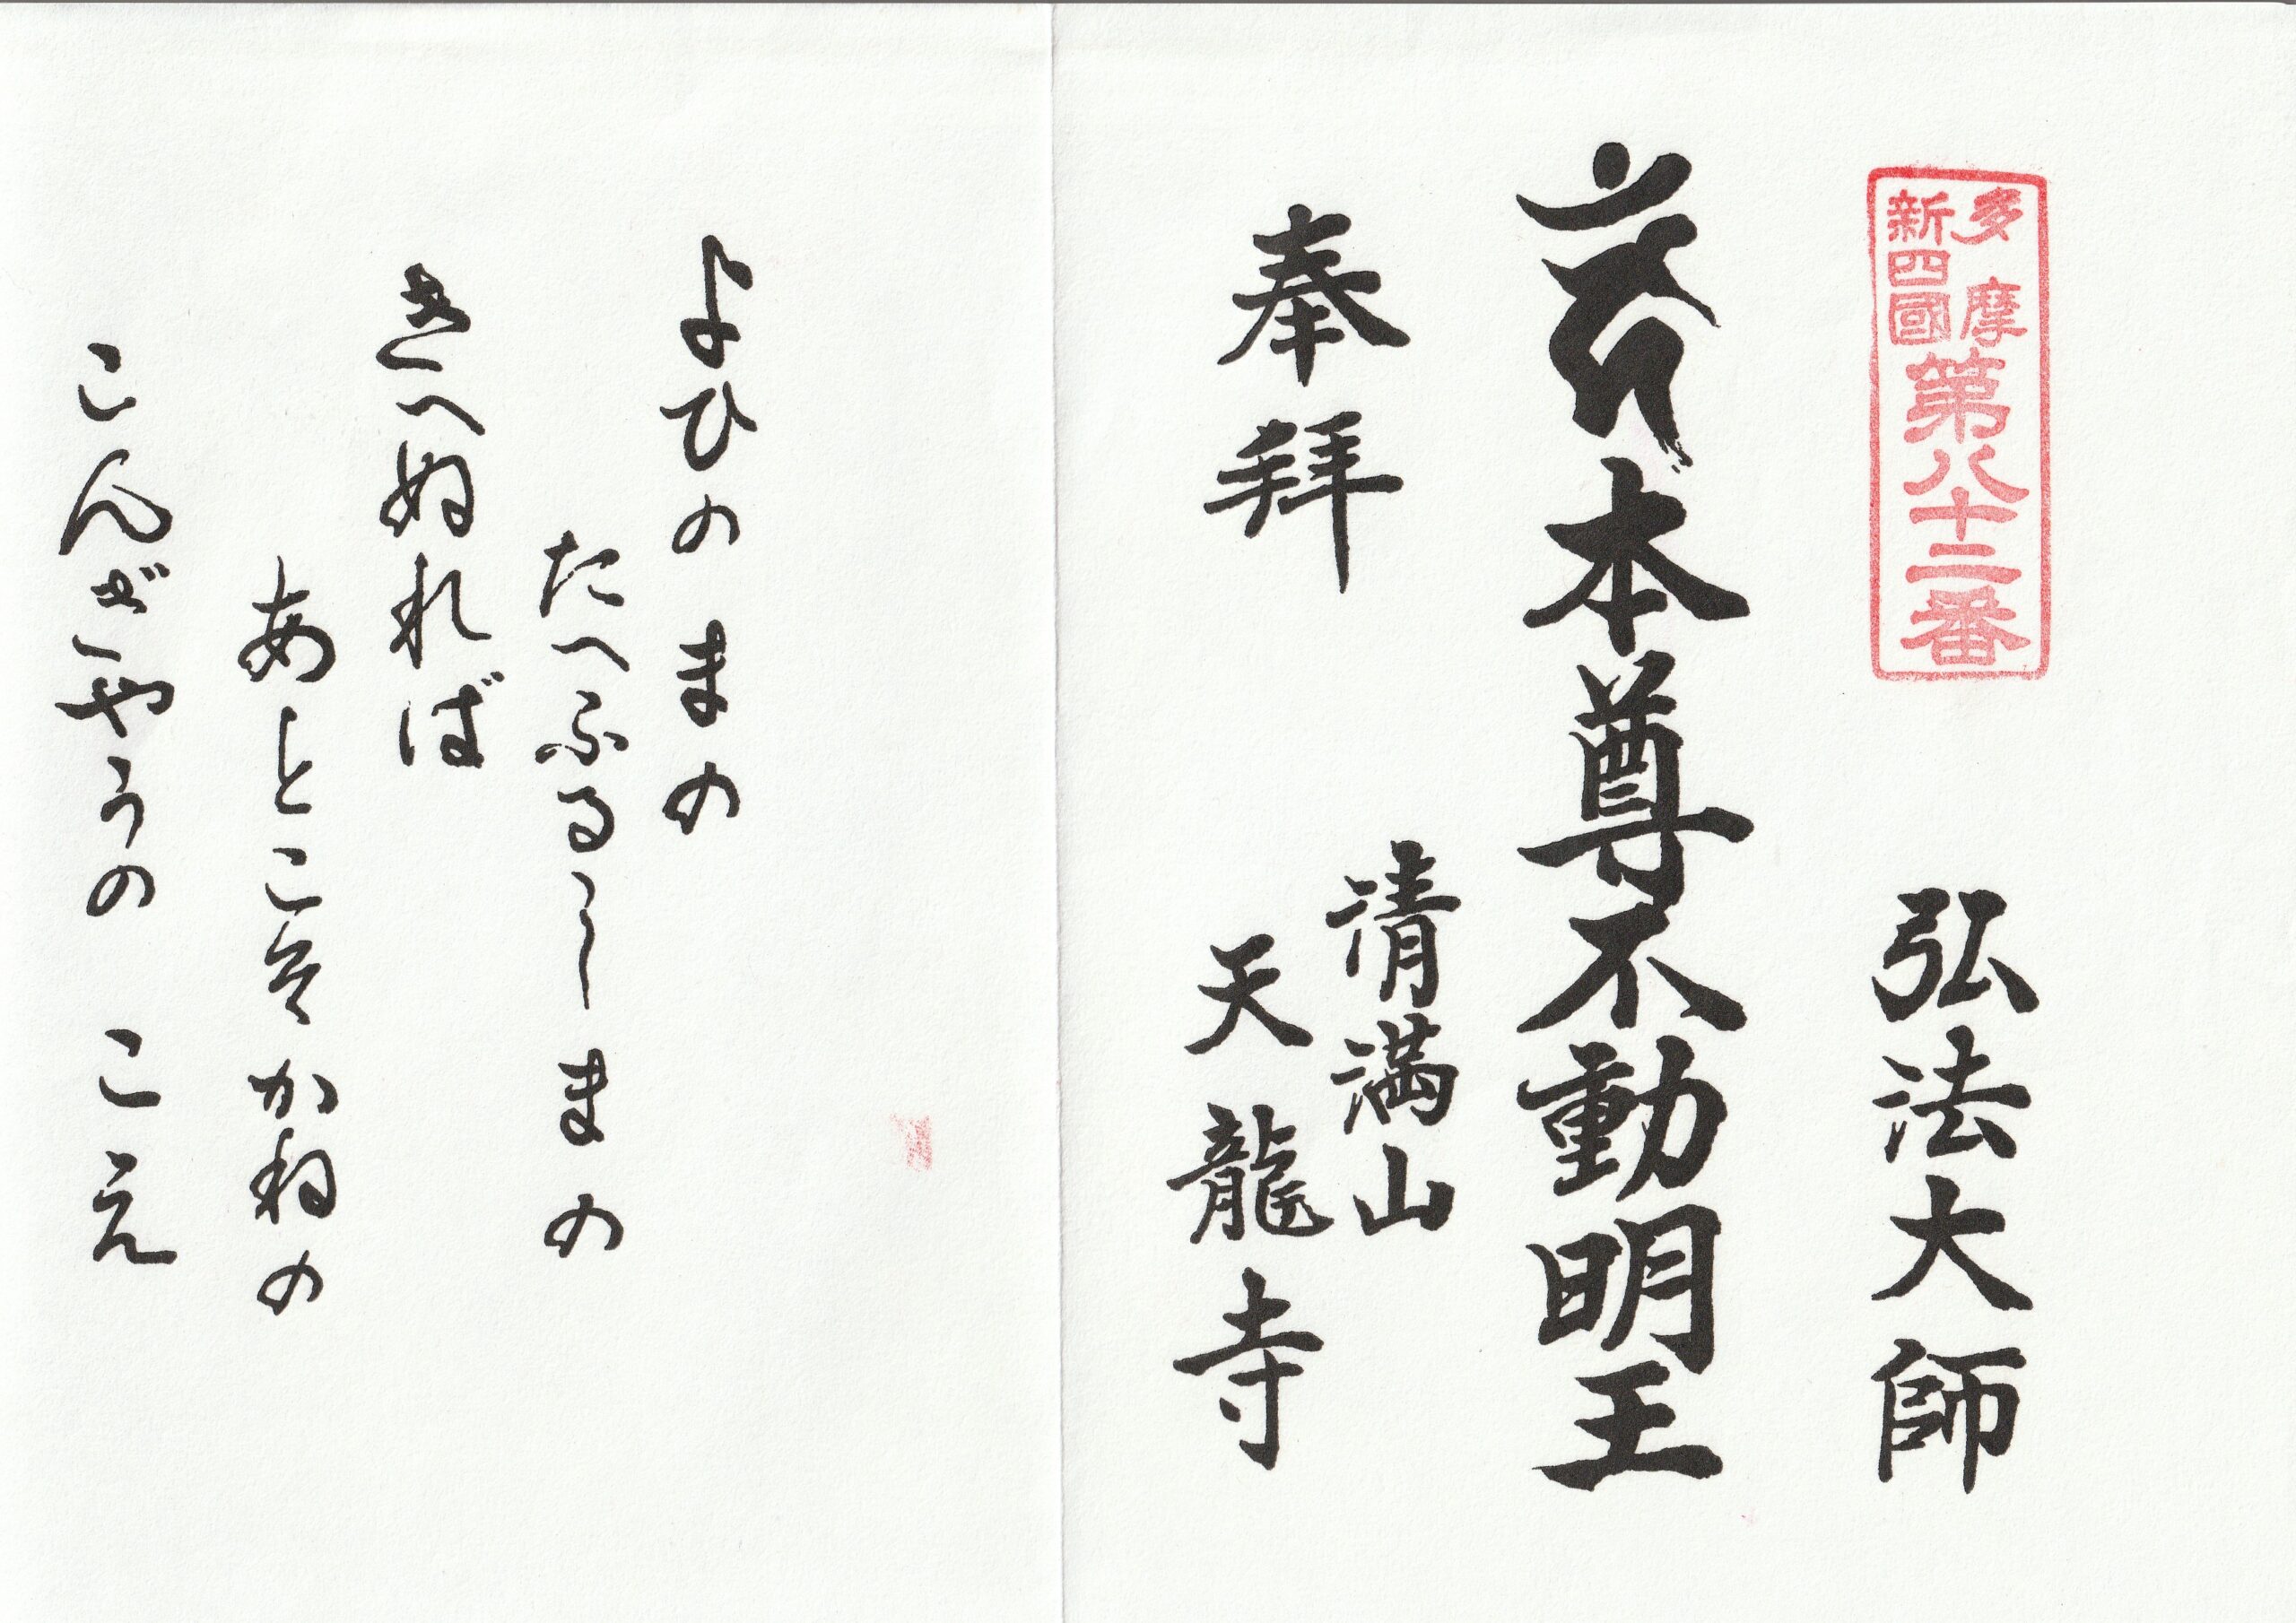 多摩
新四國
第八十二番
弘法大師
本尊不動明王
奉拝
清満山
天龍寺
よひのまの
たへふるしまの
きへぬれば
あとこそかねの
こんぎやうの こえ